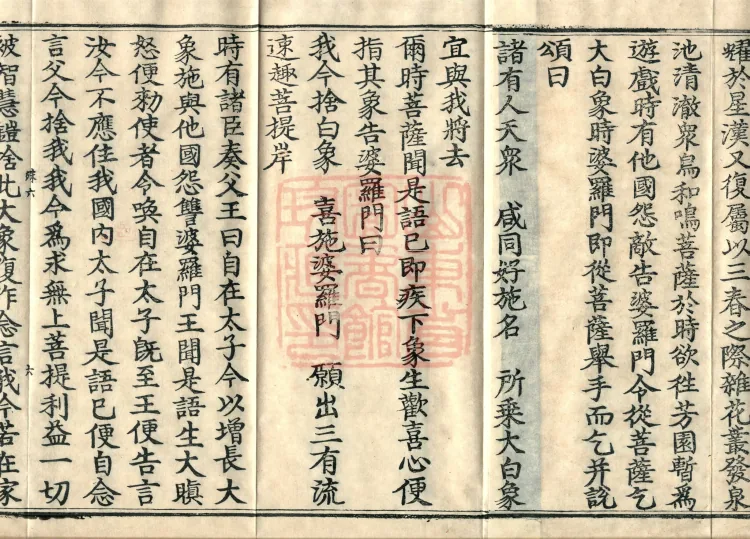 耀於星漢又復屬以三春之際雜花叢發泉
池清澈衆鳥和鳴菩薩於時欲徃芳園暫爲
遊戲時有他國怨敵告婆羅門令從菩薩乞
大白象時婆羅門即從菩薩舉手而乞并說
頌曰
諸有人天衆　咸同好施名　所乘大白象
宜與我將去
爾時菩薩聞是語已即疾下象生歡喜心便
指其象告婆羅門曰
我今捨白象　喜施婆羅門　願出三有流
速趣菩提岸
時有諸臣奏父王曰自在太子今以增長大
象施與他國怨讐婆羅門王聞是語生大瞋
怒便勑使者令喚自在太子旣至王便告言
汝今不應住我國內太子聞是語已便自念
言父今捨我我今爲求無上菩提利益一切
被智慧鎧捨此大象復作念言我今若在家
六